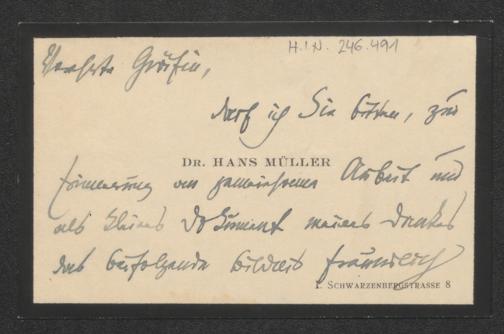 H.I.N. 246.491
Verehrte Gräfin,
darf ich Sie bitten, zur
DR. HANS MÜLLER
Erinnerung an gemeinsame Arbeit und
als kleines Dokument meines Dankes
das beifolgende
freundlich
I. SCHWARZENBERGSTRASSE 8